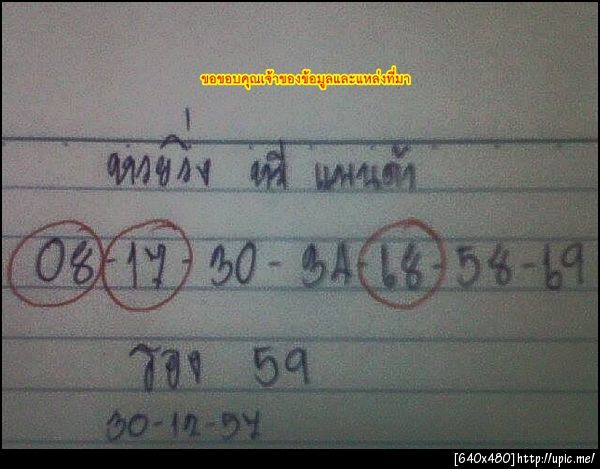 ขอขอบคุณเจ้าของข้อมูลและแหล่งที่มา
หวยวิ่ง หมี แพนด้า
08-17-30-34-68-58-69
รอง 59
30-12-57
[640x480]http://upic.me/